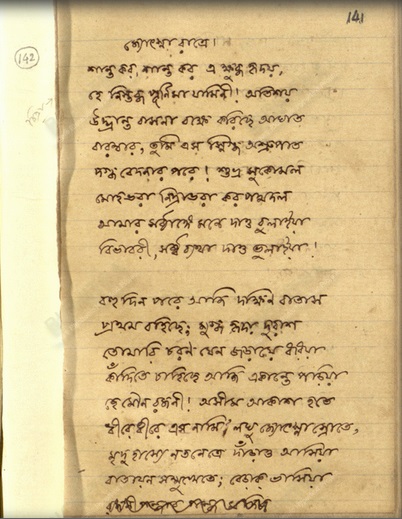 141
142
জ্যোৎস্না রাত্রে।
শান্ত কর, শান্ত কর এ ক্ষুব্ধ হৃদয়,
হে নিস্তব্ধ পূর্ণিমা যামিনী! অতিশয়
উদ্ভ্রান্ত বাসনা বক্ষে করিছে আঘাত
বারম্বার, তুমি এস স্নিগ্ধ অশ্রুপাত
দগ্ধ বেদনার পরে। শুভ্র সুকোমল
মোহভরা নিদ্রাভরা কর পদ্মদল
আমার সর্ব্বাঙ্গে মনে দাও বুলাইয়া
বিভাবরী, সর্ব্ব ব্যথা দাও ভুলাইয়া!
বহু দিন পরে আজি দক্ষিণ বাতাস
প্রথম বহিছে; মুগ্ধ হৃদয় দুরাশ
তোমারি চরণ যেন জড়ায়ে ধরিয়া
কাঁদিতে চাহিছে আজি একান্তে পড়িয়া
হে মৌন রজনী! অসীম আকাশ হতে
ধীরে ধীরে এস নামি; লঘু জ্যোৎস্না স্রোতে,
মৃদু হাস্যে নতনেত্রে দাঁড়াও আসিয়া
বাতায়ন সম্মুখেতে; বেড়াক ভাসিয়া